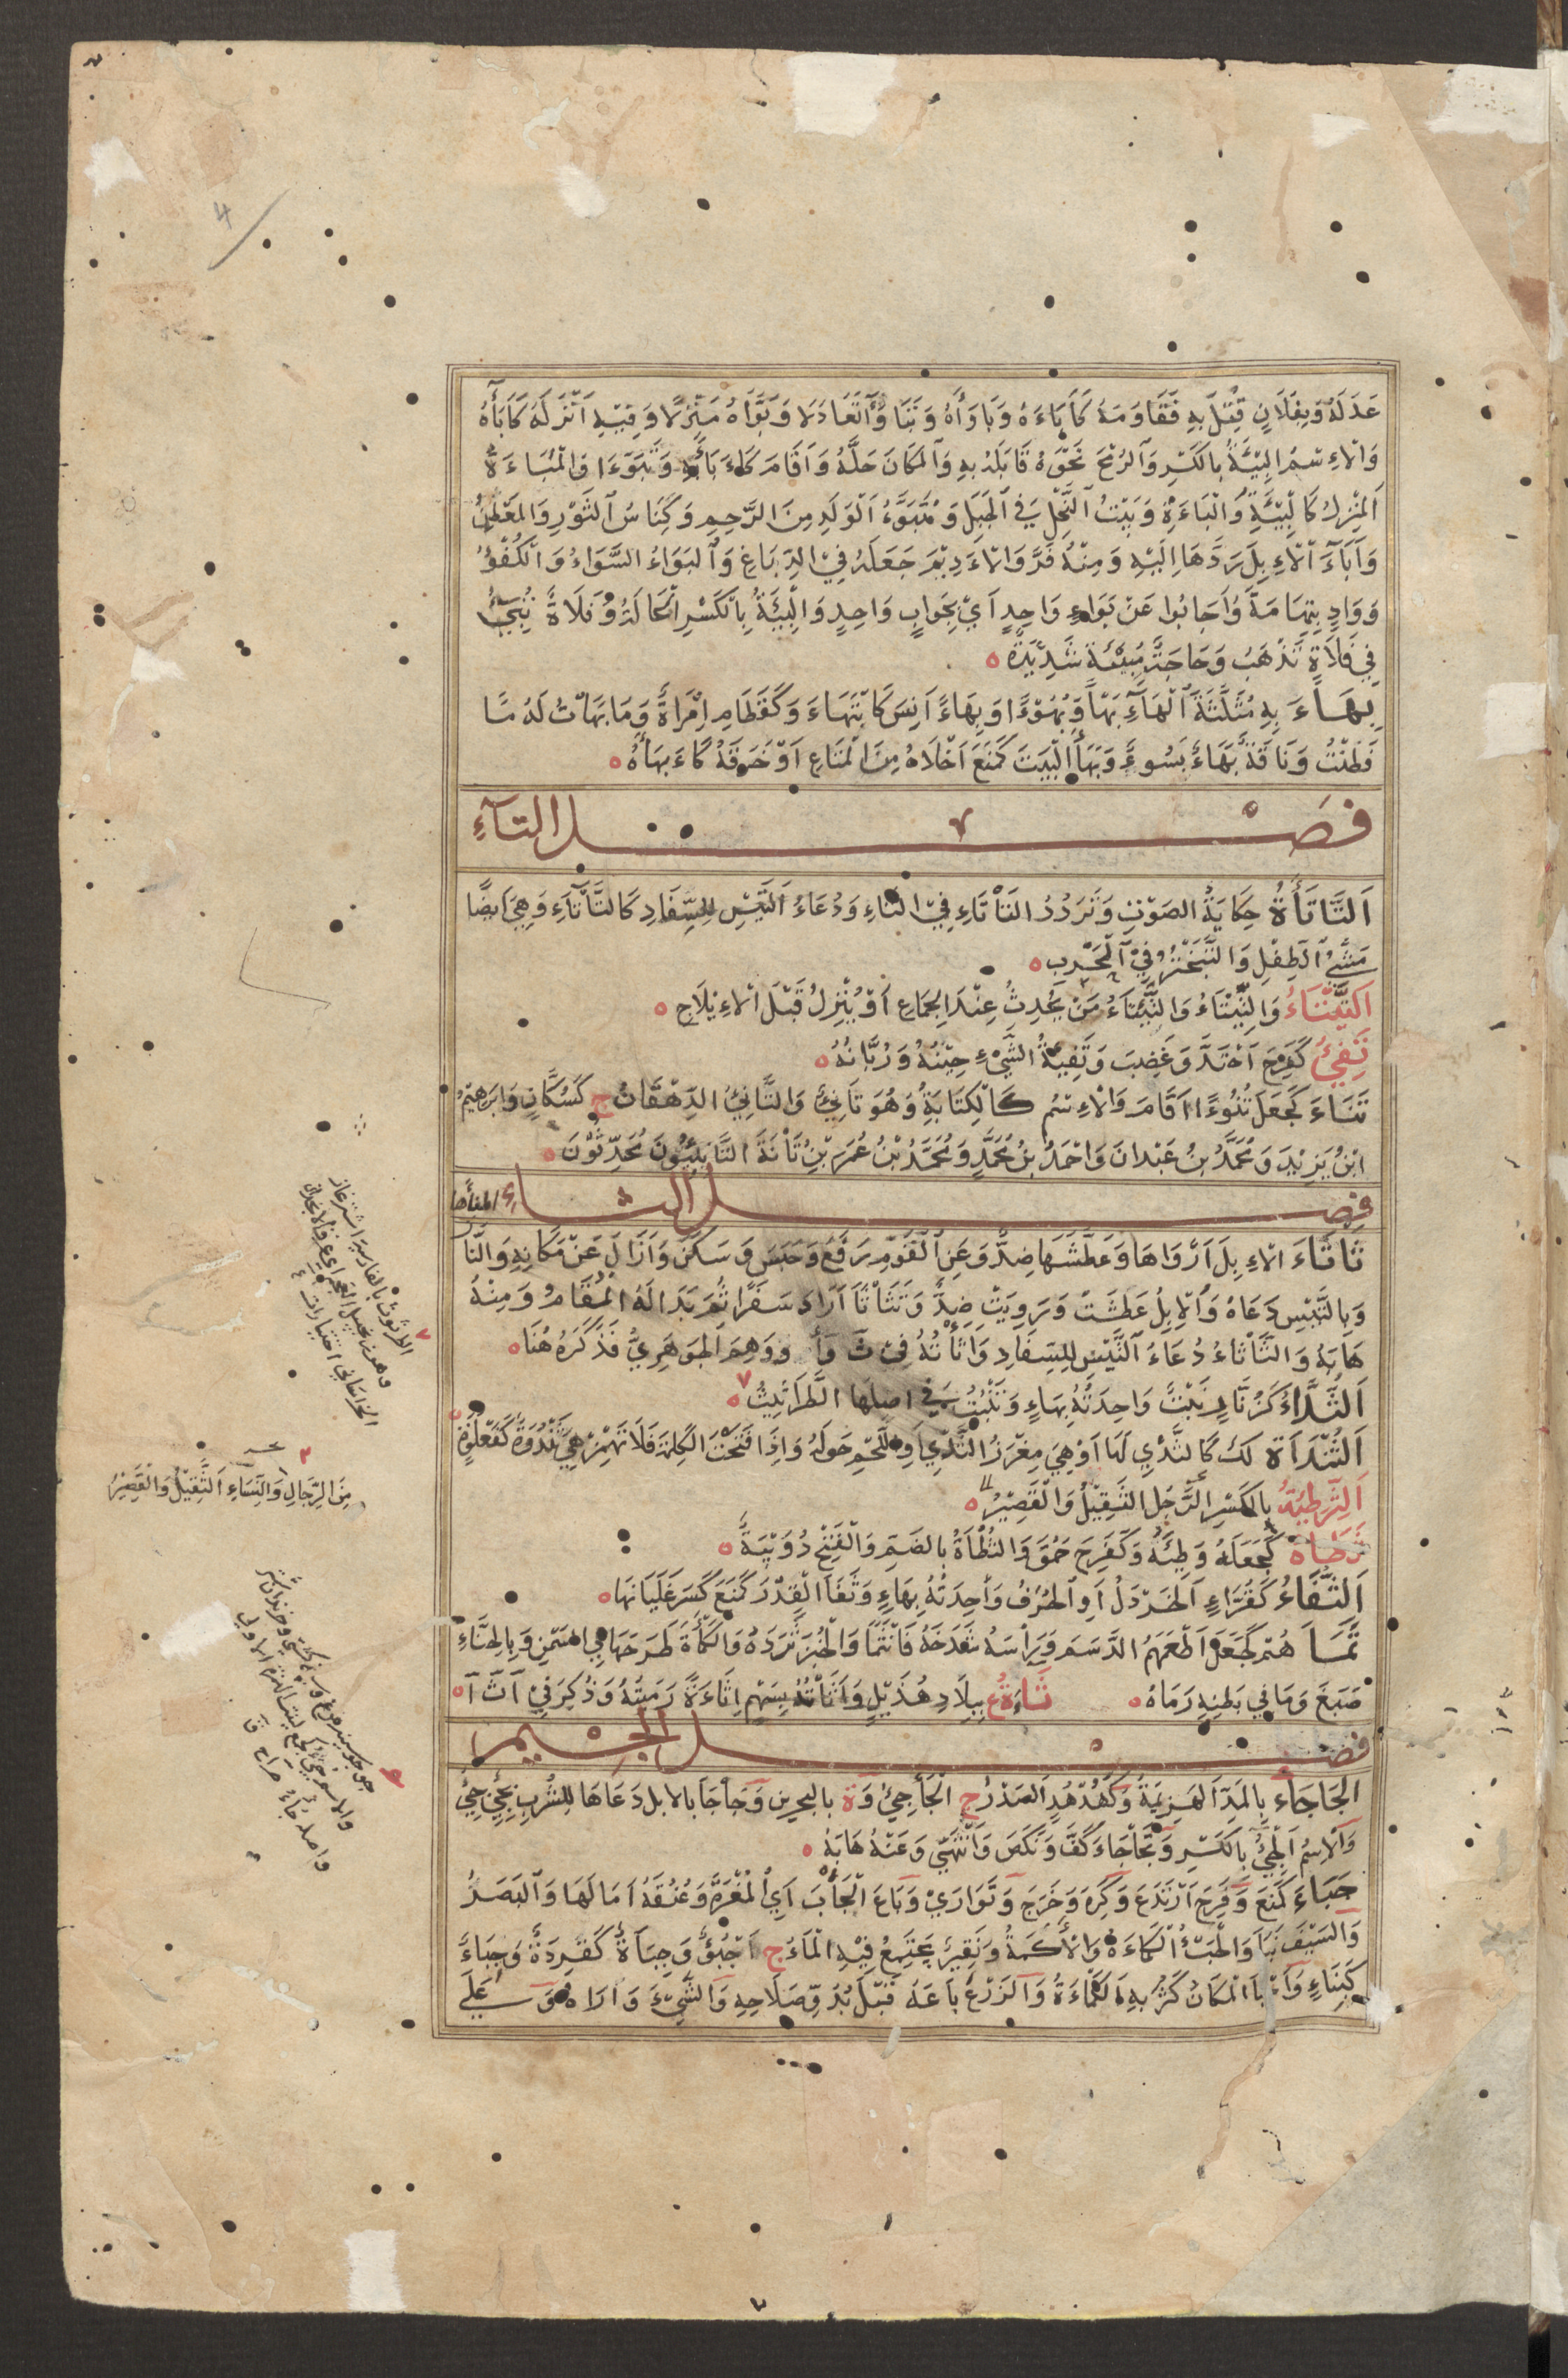 عَدَلَهُ وَبِفُلَانٍ قُتِلَ بِهِ فَقَاوَمَهُ كَأَبَاءَهُ وَبَاوَأَهُ وَتَبَاوَآ تَعَادَلَا وَبَوَّأَهُ مَنْزِلًا وَفِيْهِ اَنْزَلَهُ كَأَبَأَهُ
وَالْاِسْمُ الْبِيْئَةُ بِالْكَسْرِ وَالرُّمْحَ نَحْوَهُ قَابَلَهُ بِهِ وَالْمَكَانَ حَلَّهُ وَاَقَامَ كَاءَ بَأَبِهِ وَتَبَوَّءَا وَالْمَبَاءَةُ
اَلْمَنْزِلُ كَالْبِيْئَةِ وَالْبَاءَةِ وَبَيْتُ النَّحْلِ فِي الْجَبَلِ وَمُتَبَوَّءُ الْوَلَدِ مِنَ الرَّحِمِ وَكِنَاسُ الثَّوْرِ وَالْمَعْطِنُ
وَاَبَاءَ الْاِبِلَ رَدَّهَا اِلَيْهِ وَمِنْهُ فَرَّ وَالْاَدِيْمَ جَعَلَهُ فِي الدِّبَاغِ وَالْبَوَاءُ السَّوَاءُ وَالْكُفْؤُ
وَوَادٍ بِتِهَامَةَ وَاَجَابُوا عَنْ بَوَاءٍ وَاحِدٍ اَيْ بِجَوَابٍ وَاحِدٍ وَالْبِيْئَةُ بِالْكَسْرِ الْحَالَةُ وَفَلَاةٌ تُبِيْءُ
فِي فَلَاةٍ تَذْهَبُ وَحَاجَةٌ مُبِيْئَةٌ شَدِيْدَةٌ
بَهَاءَ بِهِ مُثَلَّثَةَ الْهَاءِ بَهْأً وَبُهُوْءًا وَبِهَاءً اَنِسَ كَابْتَهَاءَ وَكَقَطَامِ اِمْرَأَةٌ وَمَا بَهَأْتُ لَهُ مَا
فَطَنْتُ وَنَاقَةٌ بَهَاءٌ بَسُوءٌ وَبَهَأَ الْبَيْتَ كَمَنَعَ اَخْلَاهُ مِنَ الْمَتَاعِ اَوْ خَرَقَهُ كَاَبْهَأَهُ
فصل التاءِ
اَلتَّأتَأَةُ حِكَايَةُ الصَوْتِ وَتَرَدُدُ التَأْتَاءِ فِي التَّاءِ وَدُعَاءُ التَّيْسِ لِلسِّفَادِ كَالتَّأْتَاءِ وَهِيَ اَيضًا
مَشْيُ الطِفْلِ وَالتَّبَخْتُرُ فِي الْحَرْبِ
اَلتِّيْتَاءُ وَالتِّيْتَاءُ وَالتِّئْتَاءُ مَنْ يُحْدِثُ عِنْدَ الْجِمَاعِ اَوْ يُنْزِلُ قَبْلَ الْاِيْلَاجِ
تَفِئَ كَفَرِحَ اَحْتَدَّ وَغَضِبَ وَتَفِيْئَةُ الشَّيْءِ حِيْنُهُ وَرُبَّانُهُ
تَنَاءَ كَجَعَلَ تُنُوْءًا اَقَامَ وَالْاِسْمُ كَالْكِتَابَةِ وَهُوَ تَانِئٌ وَالتَّانِئُ الدِّهْقَانُ ج كَسُكَّانٍ وَاِبْرَهِيْمُ
ابْنُ يَزِيْدَ وَمُحَمَّدُ بْنُ عَبْدِانَ وَاَحْمَدُ بْنُ مُحَمَّدٍ وَمُحَمَّدُ بْنُ عُمَرَ بْنِ تَانَةَ التَّانِئِيُّونَ مُحَدِّثُوْنَ
فصل الثاء
ثَاثَاءَ الْاِبِلَ اَرْوَاهَا وَعَطَّشَهَا ضِدٌّ وَعَنِ الْقَوْمِ رَفَعَ وَحَبَسَ وَسَكَّنَ وَاَزَالَ عَنْ مَكَانِهِ وَالنَّا
وَبِالتَّيْسِ دَعَاهُ وَالْاِبِلُ عَطَشَتْ وَرَوِيَتْ ضِدٌّ وَتَثَأْثَأَ اَرَادَ سَفَرًا ثُمَّ بَدَا لَهُ الْمُقَامُ وَمِنْهُ
هَابَهُ وَالثَّأْثَاءُ دُعَاءُ التَّيْسِ لِلسِّفَادِ وَاَثَأْتُهُ فِي ث وَأ وَوَهِمَ الْجَوْهَرِيُّ فَذَكَرَهُ هُنَا
اَلثُّدَّاءُ كَزُنَّارٍ نَبْتٌ وَاحِدَتُهُ بِهَاءٍ وَتَنْبُتُ فِي اصْلِهَا الطَّرَاثِيْثُ
اَلثُّنْدَأَةُ لَكَ كَالثَّدْيِ لَهَا اَوْ هِيَ مِغْرَزُ الثَّدْيِ اَوِ اللَّحْمُ حَوْلَهُ وَاِذَا فَتَحْتَ الْكَلِمَةَ فَلَا تَهْمِزْ هِيَ ثَنْدُوَةٌ كَفَعْلُوَةٍ
اَلثِّرْطِئَةُ بِالْكَسْرِ الرَّجُلُ الثَّقِيْلُ وَالْقَصِيْرُ
ثَطَاهُ كَجَعَلَهُ وَطِئَهُ وَكَفَرِحَ حَمُقَ وَالثُّطْأَةُ بِالضَمِّ وَالْفَتْحِ دُوَيْبَةٌ
اَلثُّفَّاءُ كَقُرَّاءٍ الْخَرْدَلُ اَوِ الْحُرُفُ وَاحِدَتُهُ بِهَاءٍ وَثَفَأَ الْقِدْرَ كَمَنَعَ كَسَرَ غَلَيَانَهَا
ثَمَأَ هُمْ كَجَعَلَ اَطْعَمَهُمُ الدَّسَمَ وَرَأْسَهُ شَدَخَهُ فَانْثَمَأَ وَالْخُبْزَ ثَرَدَهُ وَالْكَمْأَةَ طَرَحَهَا فِي السَّمْنِ وَبِالْحِنَّاءِ
صَبَغَ وَمَا فِي بَطْنِهِ رَمَاهُ ثَاءَةُ ع بِبِلَادِ هُذَيْلٍ وَاَثَأْتُهُ بِسَهْمٍ اِثَاءَةً رَمَيْتُهُ وَذُكِرَ فِي آ ث آ
فصل الجيم
الْجَاجَاءُ بِالْمَدِّ الْهَزِيْمَةُ وَكَهُدْهُدٍ الصَدْرُ ج الْجَأْجِئُ وَة بِالْبَحْرِينِ وَجَأْجَأَ بِالْابِلِ دَعَاهَا لِلشُّرْبِ بِجِئْ جِئْ
وَالْاِسْمُ الْجِيْءُ بِالْكَسْرِ وَتَجَأْجَاءَ كَفَّ وَنَكَصَ وَانْتَهَى وَعَنْهُ هَابَهُ
جَبَاءَ كَمَنَعَ وَفَرِحَ ارْتَدَعَ وَكَرِهَ وَخَرَجَ وَتَوَارَيْ وَبَاعَ الْجَأْبَ اَيِ الْمُغْرَةَ وَعُنُقَهُ اَمَالَهَا وَالْبَصَرُ
وَالسَيْفُ نَبَا وَالْجَبْءُ الْكَمَاءَةُ وَالْاَكَمَةُ وَنَقِيْرٌ يَجْتَمِعُ فِيْهِ الْمَاءُ ج اَجْبُؤٌ وَجِبَأَةٌ كَقِرَدَةٍ وَجِبَاءٌ
كَبِنَاءٍ وَاَجْبَأَ الْمَكَانُ كَثُرَ بِهِ الْكَمَاءَةُ وَالزَرْعَ بَاعَهُ قَبْلَ بُدُوِّ صَلَاحِهِ وَالشَّيْءَ وَارَاهُ وَعَلَى
مِنَ الرِّجَالِ وَالنِّسَاءِ الثَّقِيْلُ وَالْقَصِيْرُ